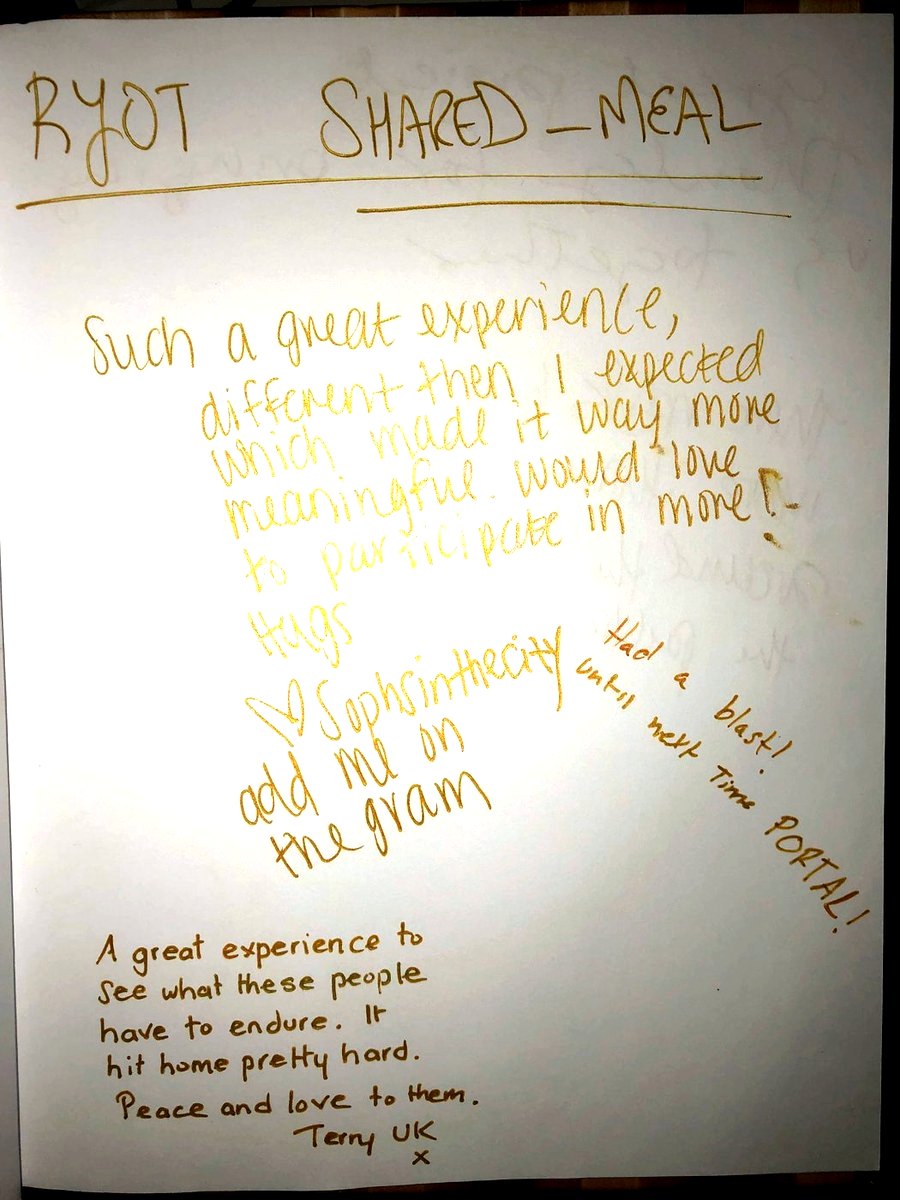 RYOT SHARED_MEAL
Such a great experience,
different then I expected
which made it way more
meaningful. Would love
to participate in more!
Hugs
♡ Sophsinthecity
add me on
the gram
Had a blast!
until next Time PORTAL!
A great experience to
see what these people
have to endure. It
hit home pretty hard.
Peace and love to them.
Terry UK
x